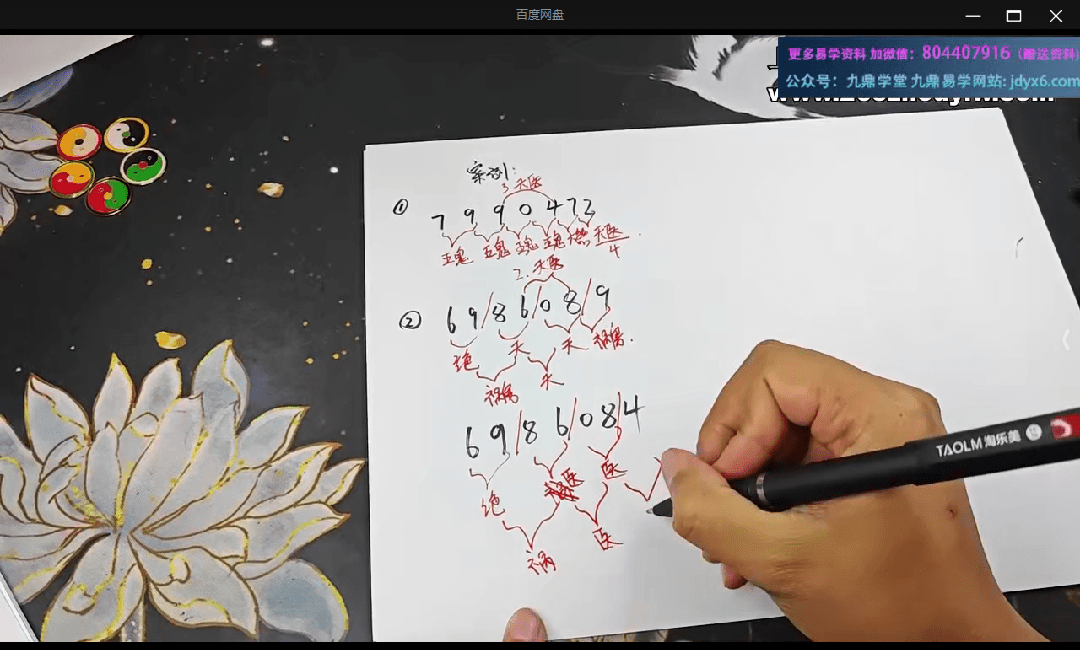 百度网盘
更多易学资料 加微信：804407916（赠送资料）
公众号：九鼎学堂 九鼎易学网站: jdyx6.com
案例：
3 天医
① 7 9 9 0 4 7 2
五鬼 五鬼 五鬼 五鬼 天医
4
2. 天医
② 6 9/8 6/0 8/9
绝 天 天 祸害.
祸害 天
6 9/8 6/0 8/4
绝 医 医
祸 医
TAOLM 淘乐美